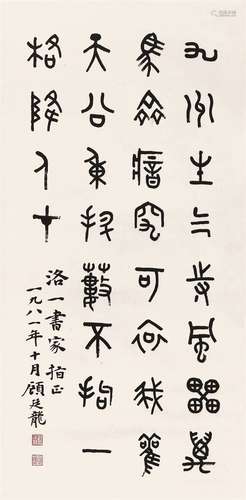 九州生气恃風雷萬
馬齊瘖究可哀我勸
天公重抖擻不拘一
格降人才
洛一書家指正
一九八一年十月顧廷龍